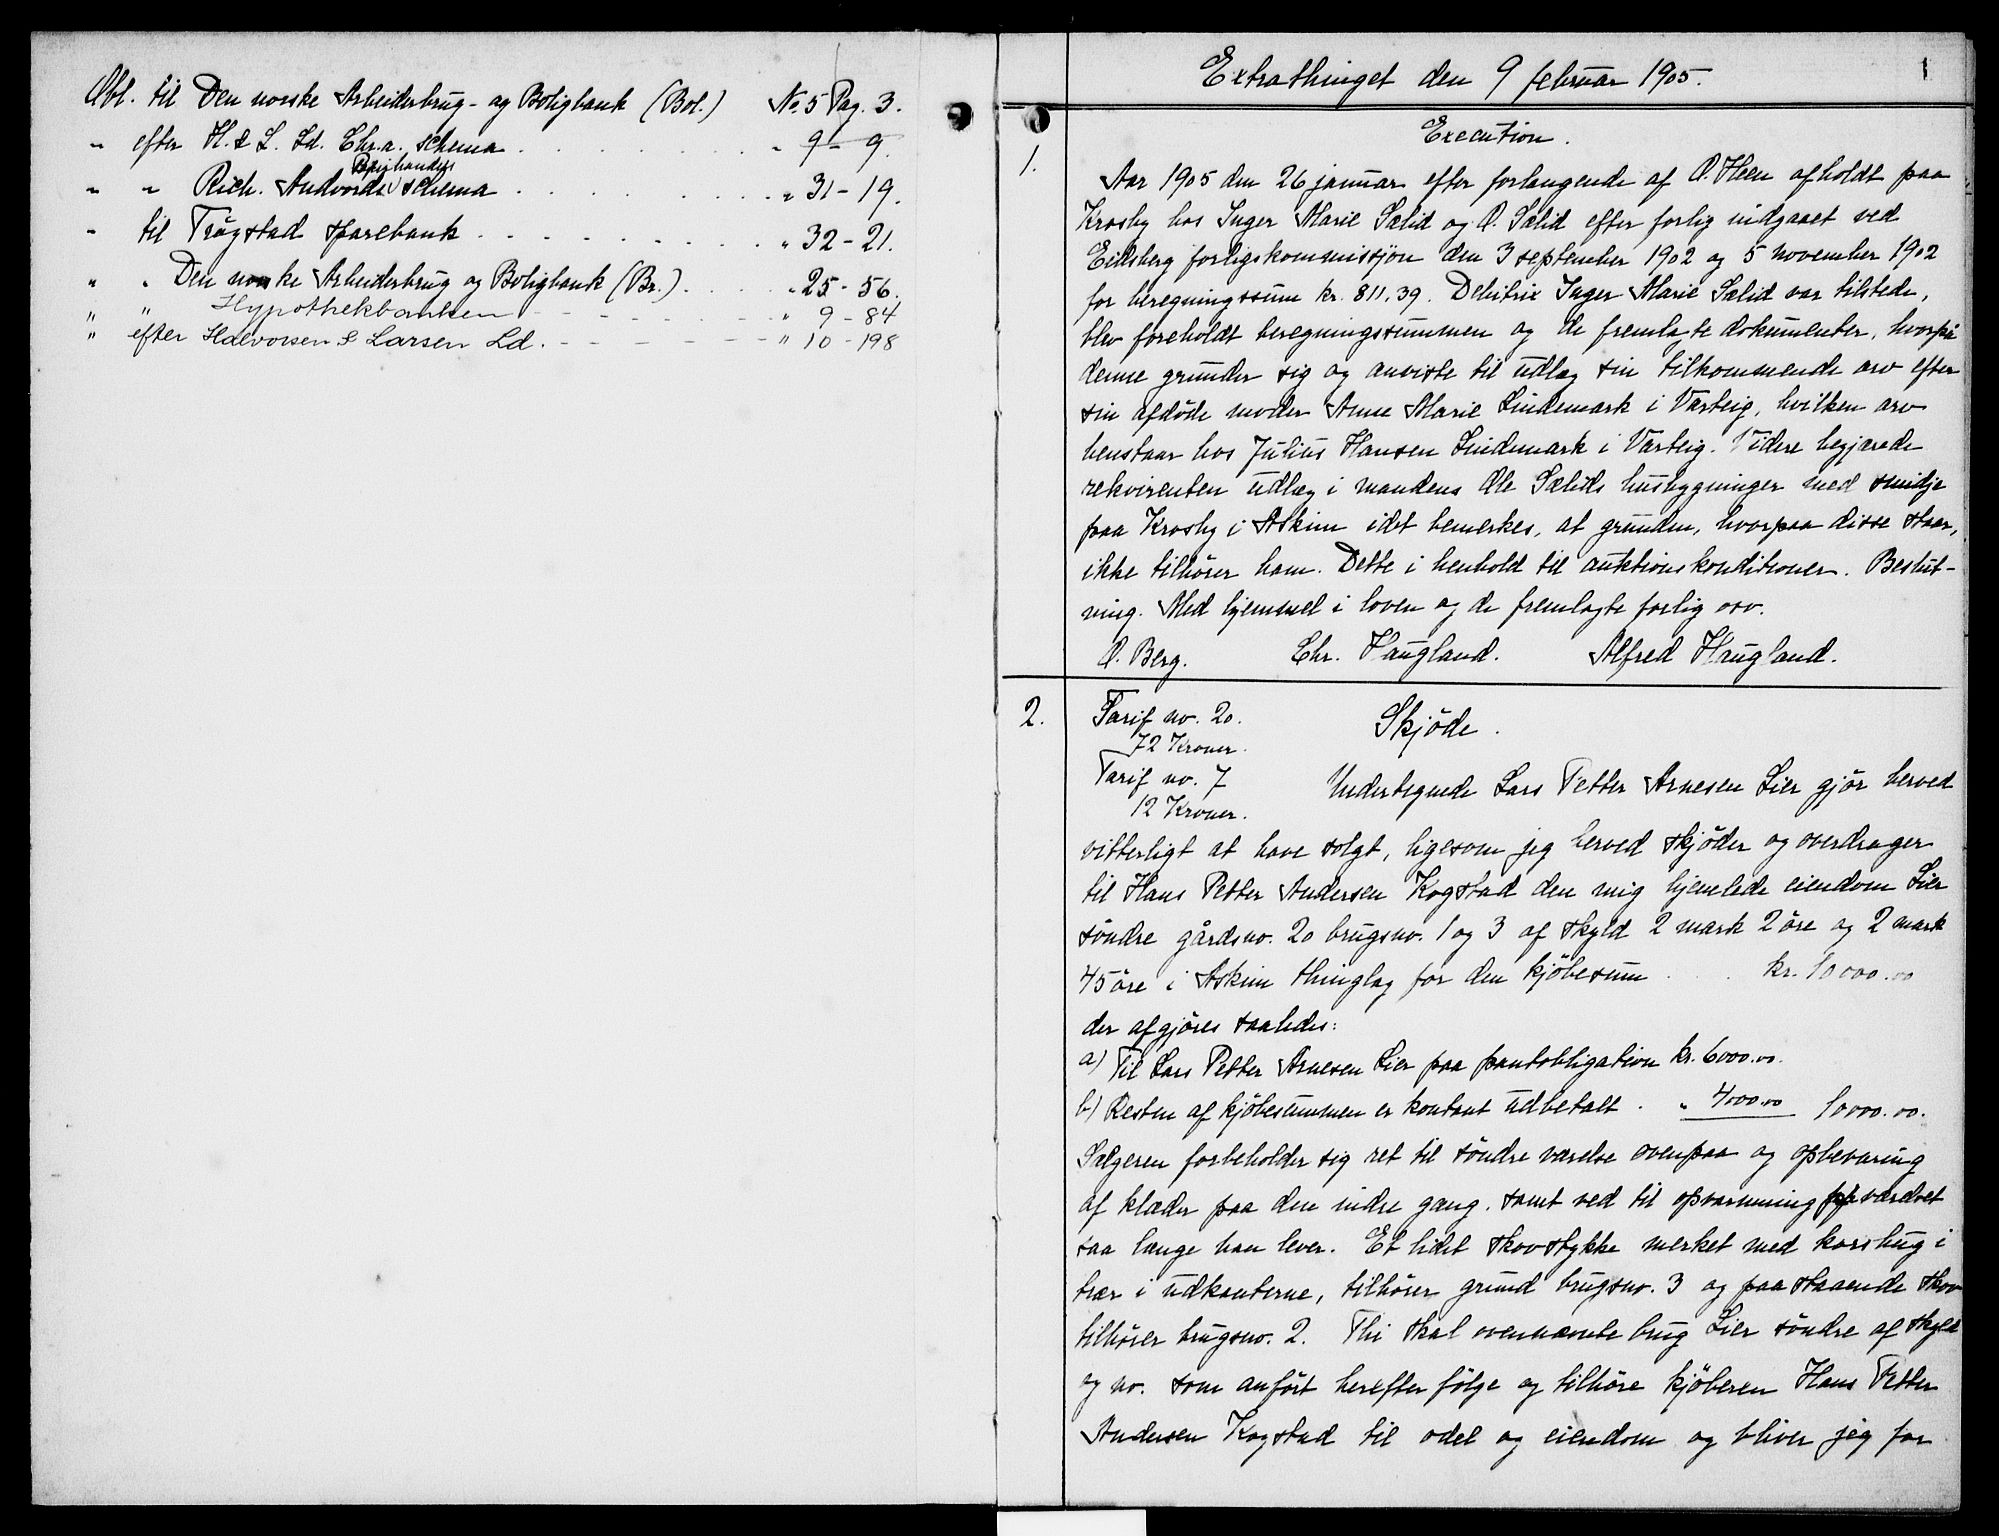 Obl. til Den norske Arbeiderbrug- og Boligbank (Bol.) No. 5 Pag. 3.
" efter H. & L. Ld. Chr.a. schema . . . . . . " 9 - 9
Boghandls
" " Rich. Andvords schema . . . . . . . . " 31 - 19.
" til Trögstad sparebank . . . . . . . . . " 32 - 21.
" " Den norske Arbeiderbrug og Boligbank (Br.) . . . . " 25 - 56.
" " Hypothekbanken - - - - - - - - " 9 - 84
" efter Halvorsen & Larsen Ld. - - - - - - - " 10 - 198
Extrathinget den 9 februar 1905.
1
Execution.
1.
Aar 1905 den 26 januar efter forlangende af O. Heen afholdt paa
Krosby hos Inger Marie Sælid og O. Sælid efter forlig indgaaet ved
Eidsberg forligskommissjon den 3 september 1902 og 5 november 1902
for beregningssum kr. 811,39. Debitrix Inger Marie Sælid var tilstede,
blev foreholdt beregningssummen og de fremlagte dokumenter, hvorpå
denne grunder sig og anviste til udlæg sin tilkommende arv efter
sin afdöde moder Anne Marie Lindemark i Varteig, hvilken arv
henstaar hos Julius Hansen Lindemark i Varteig. Videre begjærede
rekvirenten udlæg i mandens Ole Sælids husbygninger med smidje
paa Krosby i Askim idet bemerkes, at grunden, hvorpaa disse staar,
ikke tilhörer ham. Dette i henhold til auktionskonditioner. Beslut-
ning. Med hjemmel i loven og de fremlagte forlig osv.
O. Berg. Chr. Haugland. Alfred Haugland.
2.
Tarif no. 20.
72 Kroner.
Tarif no. 7
12 Kroner.
Skjöde.
Undertegnede Lars Petter Arnesen Lier gjör herved
vitterligt at have solgt, ligesom jeg herved skjöder og overdrager
til Hans Petter Andersen Kogstad den mig hjemlede eiendom Lier
söndre gårdsno. 20 brugsno. 1 og 3 af skyld 2 mark 2 öre og 2 mark
45 öre i Askim thinglag for den kjöbesum . . kr. 10000.00
der afgjöres saaledes:
a) Til Lars Petter Arnesen Lier paa pantobligation kr. 6000.00.
b) Resten af kjöbesummen er kontant udbetalt . " 4000.00 10000.00.
Sælgeren forbeholder sig ret til söndre værelse ovenpaa og opbevaring
af klæder paa den indre gang, samt ved til opvarmning
saa længe han lever. Et lidet skovstykke merket med korshug i
trær i udkanterne, tilhörer grund brugsno. 3 og paastaaende skov
tilhörer brugsno. 2. Thi skal ovennævnte brug Lier söndre af skyld
og no. som anfört herefter fölge og tilhöre kjöberen Hans Petter
Andersen Kogstad til odel og eiendom og bliver jeg for